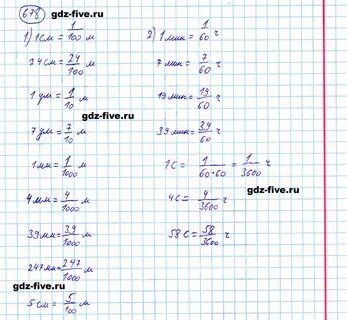 678 gdz-five.ru
1) 1 см = 1/100 м
24 см = 24/100 м
1 дм = 1/10 м
7 дм = 7/10 м
1 мм = 1/1000 м
4 мм = 4/1000 м
39 мм = 39/1000 м
247 мм = 247/1000 м
5 см = 5/100 м
2) 1 мин = 1/60 ч
7 мин = 7/60
19 мин = 19/60
39 мин = 39/60
1 с = 1/60·60 = 1/3600 ч
4 с = 4/3600
58 с = 58/3600 ч
gdz-five.ru
gdz-five.ru
gdz-five.ru
gdz-five.ru